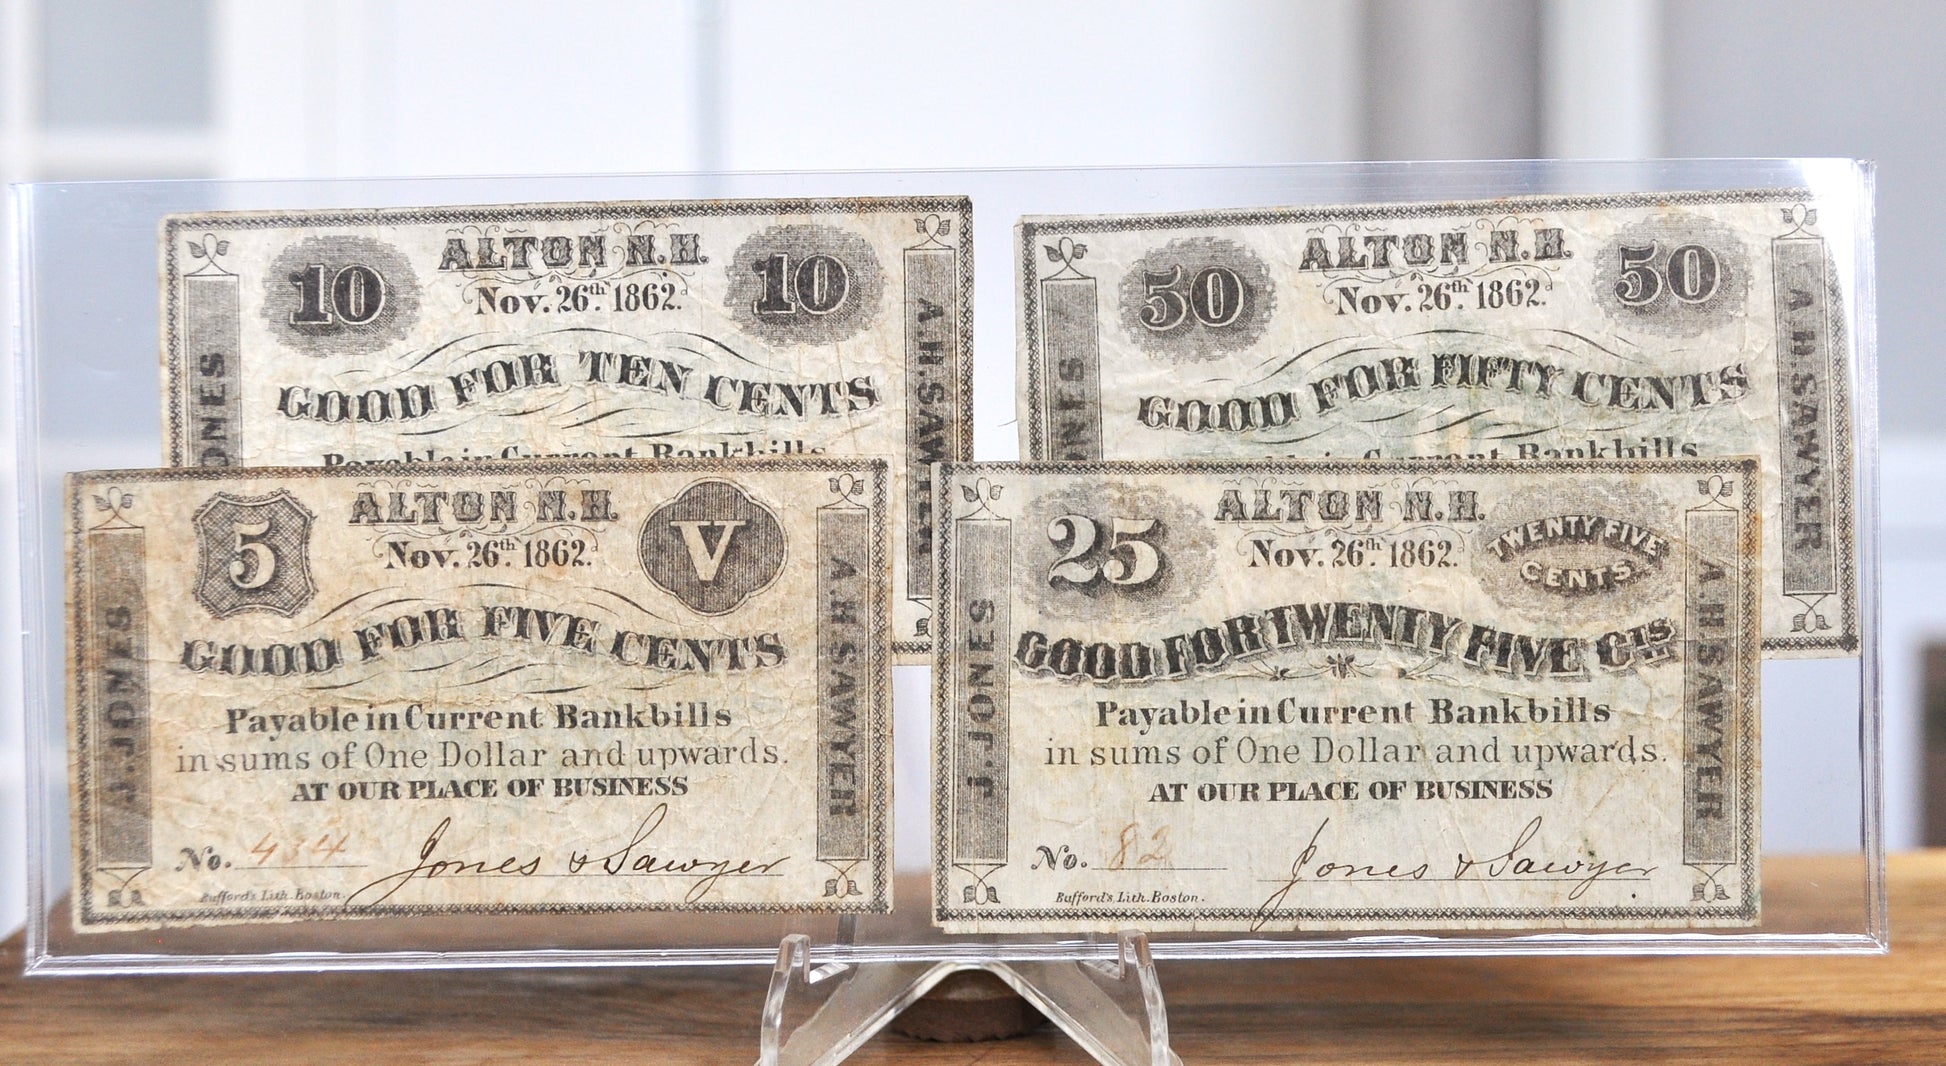 10
ALTON N.H.
10
Nov. 26th 1862.
GOOD FOR TEN CENTS
Payable in Current Bankbills
JONES
A.H. SAWYER
50
ALTON N.H.
50
Nov. 26th 1862.
GOOD FOR FIFTY CENTS
Payable in Current Bankbills
JONES
A.H. SAWYER
5
ALTON N.H.
V
Nov. 26th 1862.
GOOD FOR FIVE CENTS
Payable in Current Bankbills
in sums of One Dollar and upwards.
AT OUR PLACE OF BUSINESS
No. 434 Jones & Sawyer
Bufford's Lith. Boston.
J. JONES
A.H. SAWYER
25
ALTON N.H.
TWENTY FIVE
CENTS.
Nov. 26th 1862.
GOOD FOR TWENTY FIVE CTS
Payable in Current Bankbills
in sums of One Dollar and upwards.
AT OUR PLACE OF BUSINESS
No. 82 Jones & Sawyer
Bufford's Lith. Boston.
J. JONES
A.H. SAWYER